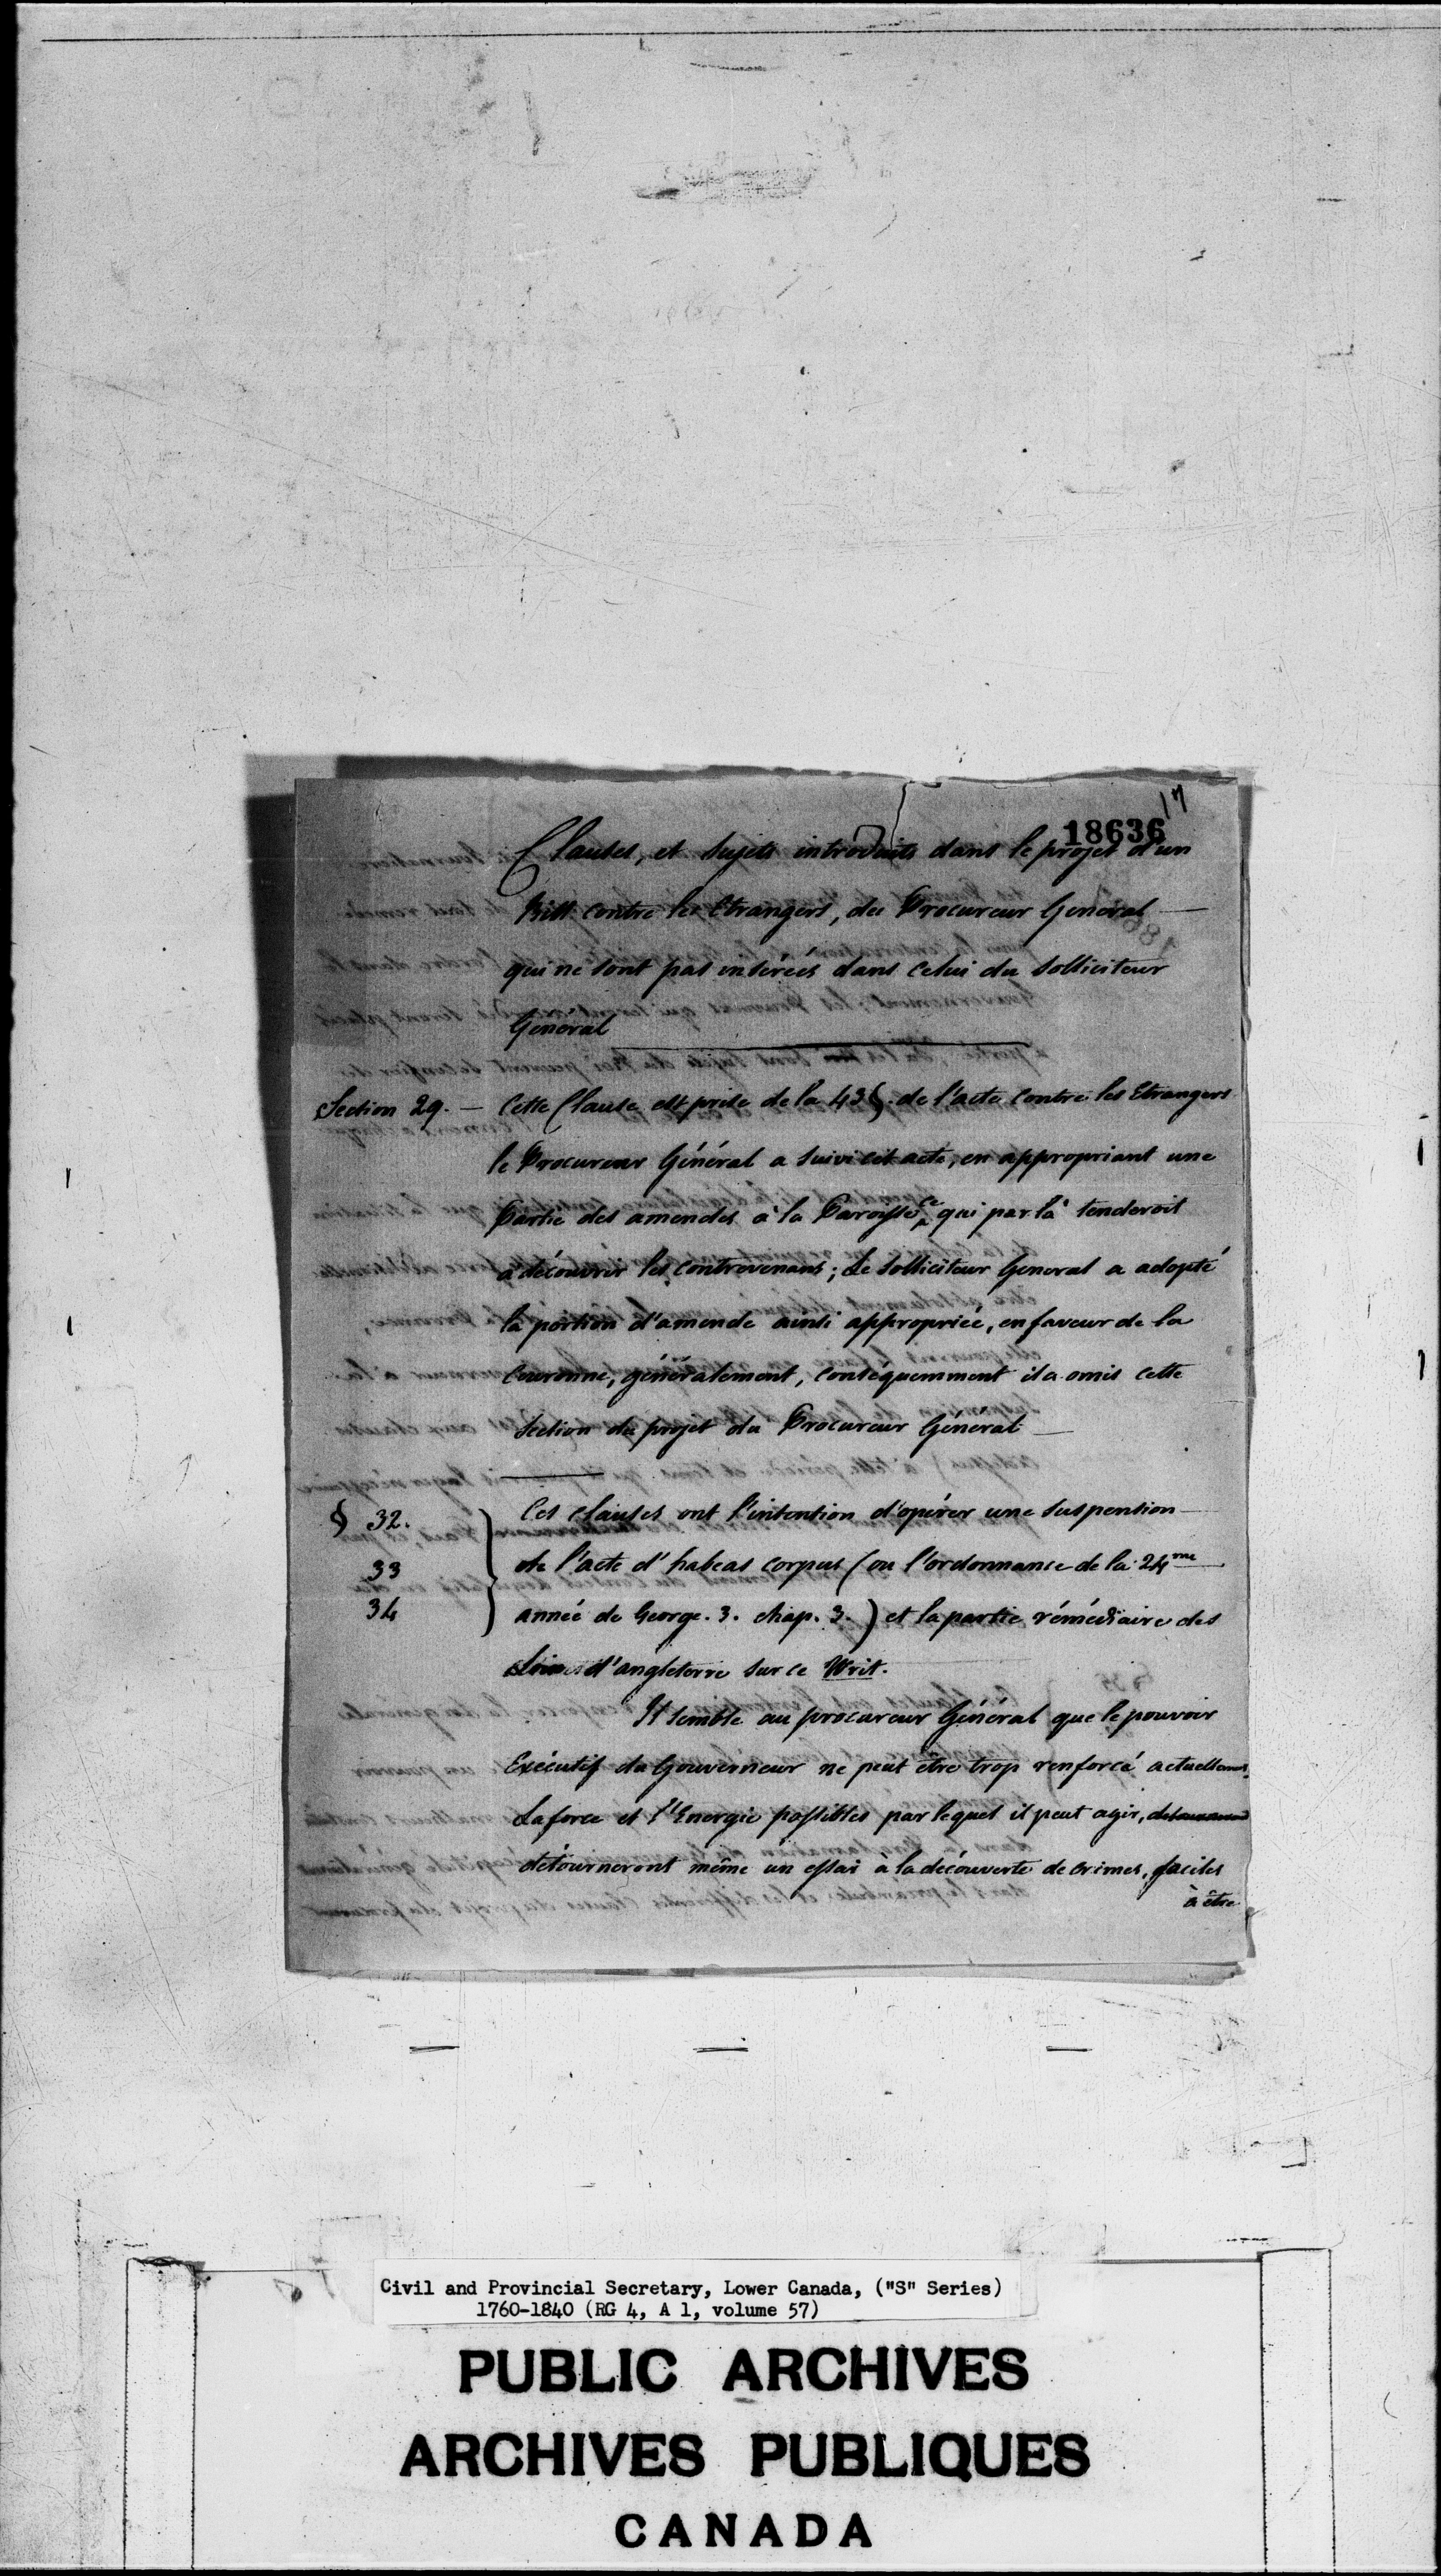 17
18636
Clauses, et sujets introduits dans le projet d'un
Bill contre les Etrangers, du Procureur General —
qui ne sont pas insérés dans celui du solliciteur
Général
Section 29. — Cette Clause est prise de la 43 §. de l'acte contre les Etrangers
le Procureur Général a suivi cet acte, en appropriant une
Partie des amendes à la Paroisse ce qui par là tenderoit
à découvrir les contrevenans; Le Solliciteur General a adopté
la portion d'amende ainsi appropriée, en faveur de la
Couronne, généralement, conséquemment il a omis cette
Section du projet du Procureur Général —
§ 32. Ces clauses ont l'intention d'opérer une suspension
33 de l'acte d'habeas corpus (ou l'ordonnance de la 24me
34 année de George. 3. chap. 3.) et la partie rémédiaire des
Loix d'angleterre sur ce Writ.
Il semble au procureur Général que le pouvoir
Exécutif du Gouverneur ne peut être trop renforcé actuellement.
La force et l'Energie possibles par lequel il peut agir,
détourneront même un essai à la découverte de crimes, faciles
à être
Civil and Provincial Secretary, Lower Canada, ("S" Series)
1760-1840 (RG 4, A 1, volume 57)
PUBLIC ARCHIVES
ARCHIVES PUBLIQUES
CANADA